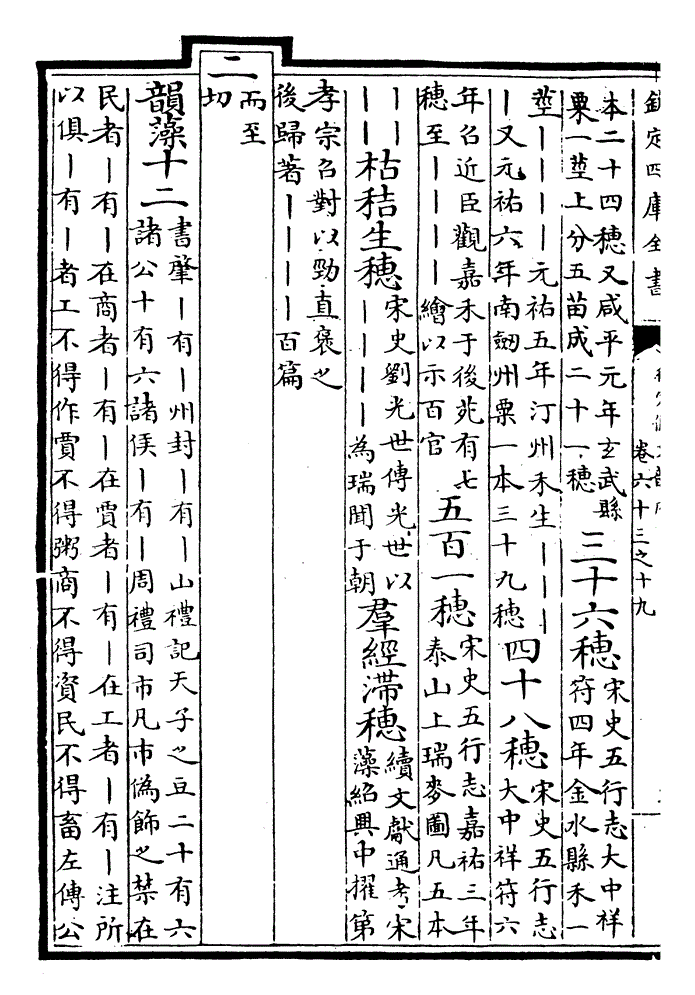 欽定四庫全書
卷六十三之十九
本二十四穗又咸平元年玄武縣
粟一莖上分五苗成二十一穗
三十六穗
宋史五行志大中祥
符四年金水縣禾一
莖｜｜｜｜元祐五年汀州禾生｜｜｜
｜又元祐六年南劒州粟一本三十九穗
四十八穗
宋史五行志
大中祥符六
年召近臣觀嘉禾于後苑有七
穗至｜｜｜｜繪以示百官
五百一穗
宋史五行志嘉祐三年
泰山上瑞麥圖凡五本
｜｜
｜｜
枯秸生穗
宋史劉光世傳光世以
｜｜｜｜為瑞聞于朝
羣經滯穗
續文獻通考宋
藻紹興中擢第
孝宗召對以勁直褒之
後歸著｜｜｜｜百篇
二
而至
切
韻藻十二
書肇｜有｜州封｜有｜山禮記天子之豆二十有六
諸公十有六諸侯｜有｜周禮司市凡市偽飾之禁在
民者｜有｜在商者｜有｜在賈者｜有｜在工者｜有｜注所
以俱｜有｜者工不得作賈不得粥商不得資民不得畜左傳公